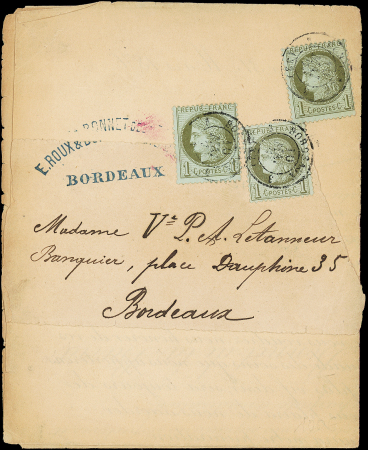 REPUB. FRANC.
1 POSTES C. 1
REPUB. FRANC.
1 POSTES C. 1
REPUB. FRANC.
1 POSTES C. 1
BONNET
E. ROUX &
BORDEAUX
Madame Ve P. A. Letanneur
Banquier, place Dauphine 35
Bordeaux